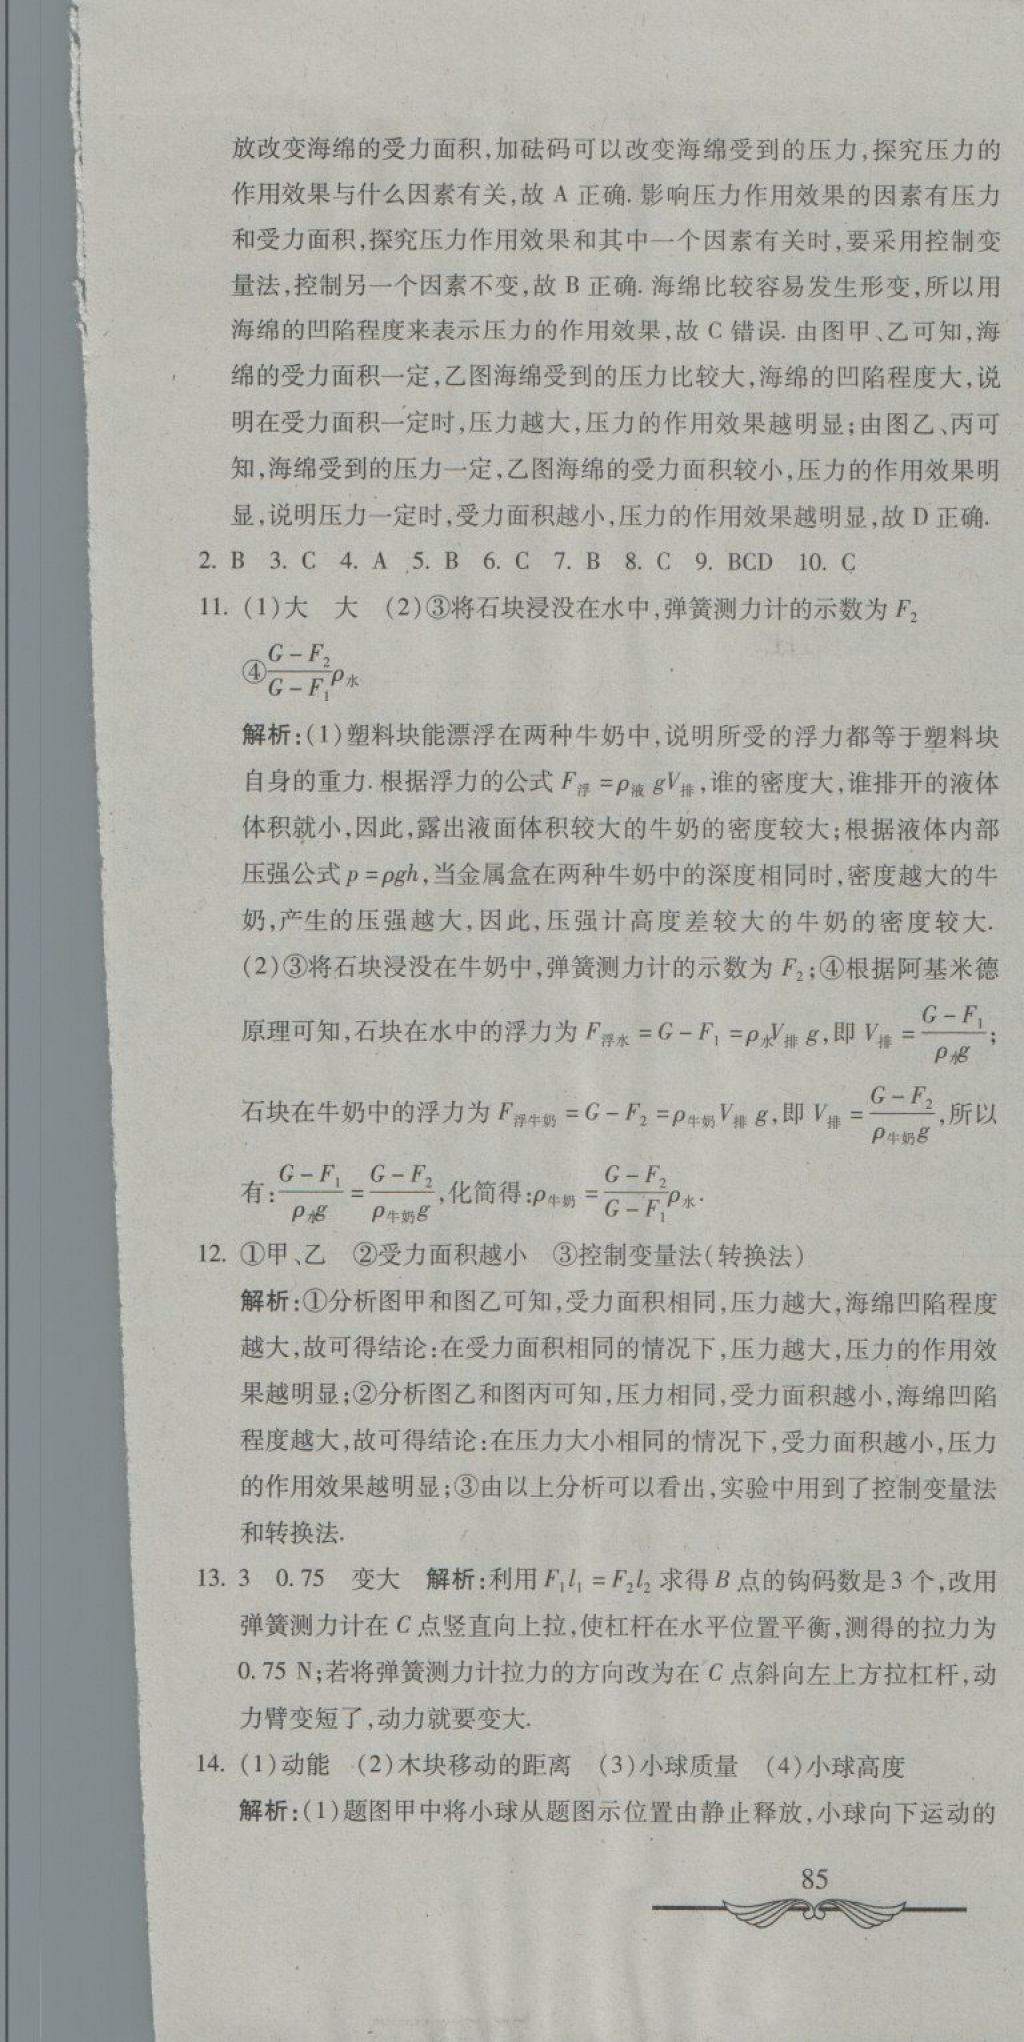 放改变海绵的受力面积,加砝码可以改变海绵受到的压力,探究压力的
作用效果与什么因素有关,故 A 正确. 影响压力作用效果的因素有压力
和受力面积,探究压力作用效果和其中一个因素有关时,要采用控制变
量法,控制另一个因素不变,故 B 正确. 海绵比较容易发生形变,所以用
海绵的凹陷程度来表示压力的作用效果,故 C 错误. 由图甲、乙可知,海
绵的受力面积一定,乙图海绵受到的压力比较大,海绵的凹陷程度大,说
明在受力面积一定时,压力越大,压力的作用效果越明显;由图乙、丙可
知,海绵受到的压力一定,乙图海绵的受力面积较小,压力的作用效果明
显,说明压力一定时,受力面积越小,压力的作用效果越明显,故 D 正确.
2. B 3. C 4. A 5. B 6. C 7. B 8. C 9. BCD 10. C
11. (1)大 大 (2)③将石块浸没在水中,弹簧测力计的示数为 F₂
④(G－F₂)/(G－F₁)ρ水
解析:(1)塑料块能漂浮在两种牛奶中,说明所受的浮力都等于塑料块
自身的重力. 根据浮力的公式 F浮 =ρ液 gV排,谁的密度大,谁排开的液体
体积就小,因此,露出液面体积较大的牛奶的密度较大;根据液体内部
压强公式 p =ρgh,当金属盒在两种牛奶中的深度相同时,密度越大的牛
奶,产生的压强越大,因此,压强计高度差较大的牛奶的密度较大.
(2)③将石块浸没在牛奶中,弹簧测力计的示数为 F₂;④根据阿基米德
原理可知,石块在水中的浮力为 F浮水 =G－F₁ =ρ水V排 g,即 V排 =(G－F₁)/(ρ水g);
石块在牛奶中的浮力为 F浮牛奶 =G－F₂ =ρ牛奶V排 g,即 V排 =(G－F₂)/(ρ牛奶g),所以
有:(G－F₁)/(ρ水g)=(G－F₂)/(ρ牛奶g),化简得:ρ牛奶 =(G－F₂)/(G－F₁)ρ水.
12. ①甲、乙 ②受力面积越小 ③控制变量法(转换法)
解析:①分析图甲和图乙可知,受力面积相同,压力越大,海绵凹陷程度
越大,故可得结论:在受力面积相同的情况下,压力越大,压力的作用效
果越明显;②分析图乙和图丙可知,压力相同,受力面积越小,海绵凹陷
程度越大,故可得结论:在压力大小相同的情况下,受力面积越小,压力
的作用效果越明显;③由以上分析可以看出,实验中用到了控制变量法
和转换法.
13. 3 0.75 变大 解析:利用 F₁l₁ =F₂l₂ 求得 B 点的钩码数是 3 个,改用
弹簧测力计在 C 点竖直向上拉,使杠杆在水平位置平衡,测得的拉力为
0.75 N;若将弹簧测力计拉力的方向改为在 C 点斜向左上方拉杠杆,动
力臂变短了,动力就要变大.
14. (1)动能 (2)木块移动的距离 (3)小球质量 (4)小球高度
解析:(1)题图甲中将小球从题图示位置由静止释放,小球向下运动的
85